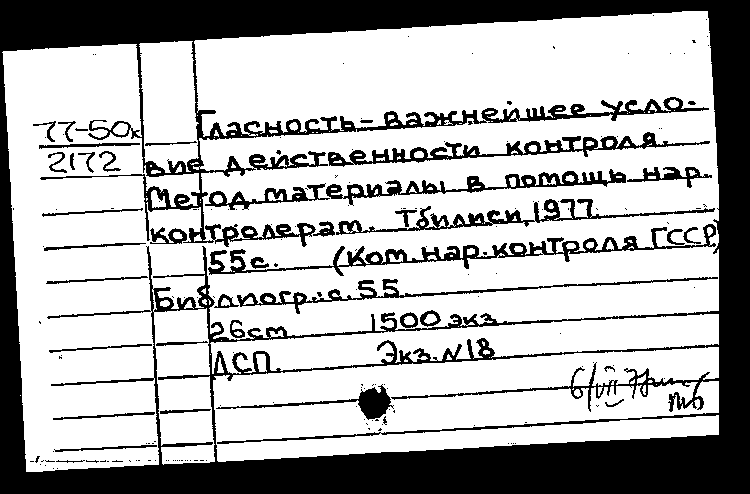 77-50к
2172
Гласность - важнейшее усло-
вие действенности контроля.
Метод. материалы в помощь нар.
контролерам. Тбилиси, 1977.
55с. (Ком. нар. контроля ГССР)
Библиогр.: с. 55.
26см 1500 экз.
ДСП. Экз. N18
6/VII